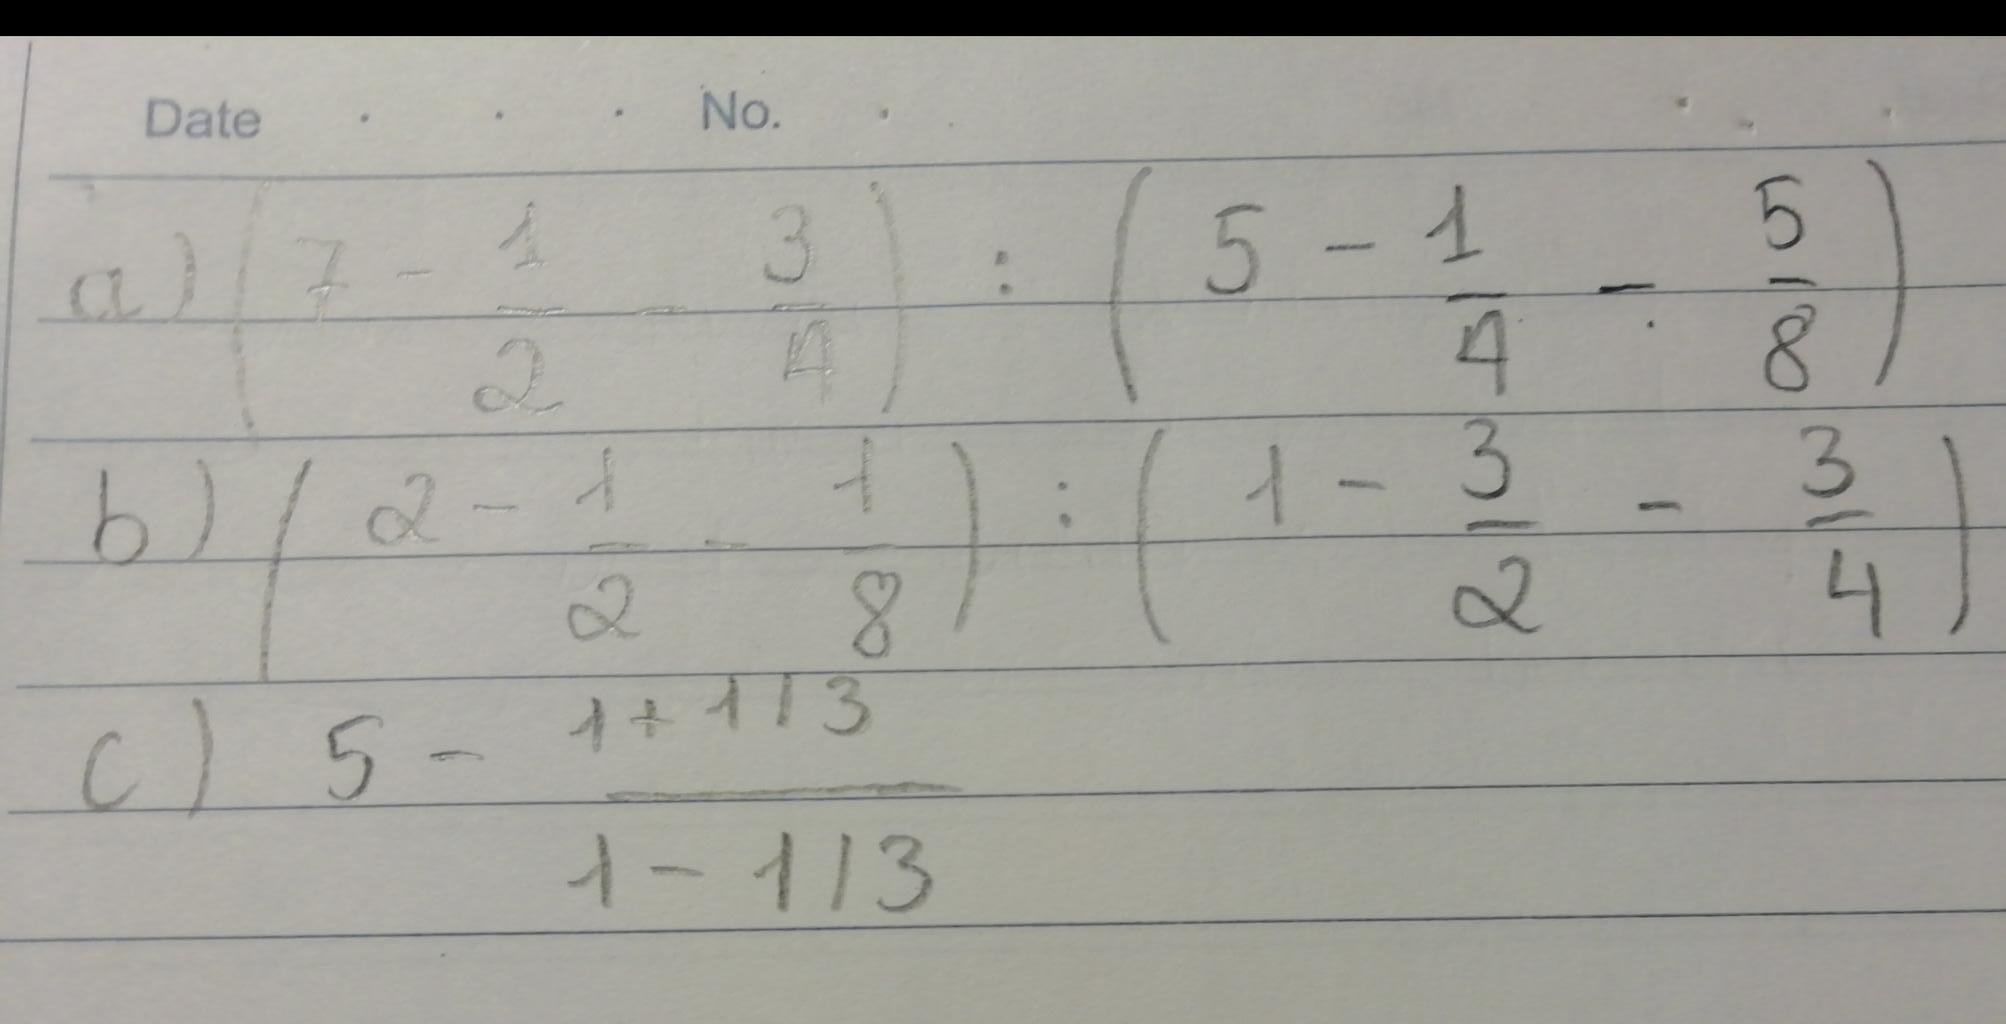 Date . . . No. .
a) (7 - 1/2 - 3/4) : (5 - 1/4 - 5/8)
b) (2 - 1/2 - 1/8) : (1 - 3/2 - 3/4)
c) 5 - (1 + 1/3)/(1 - 1/3)